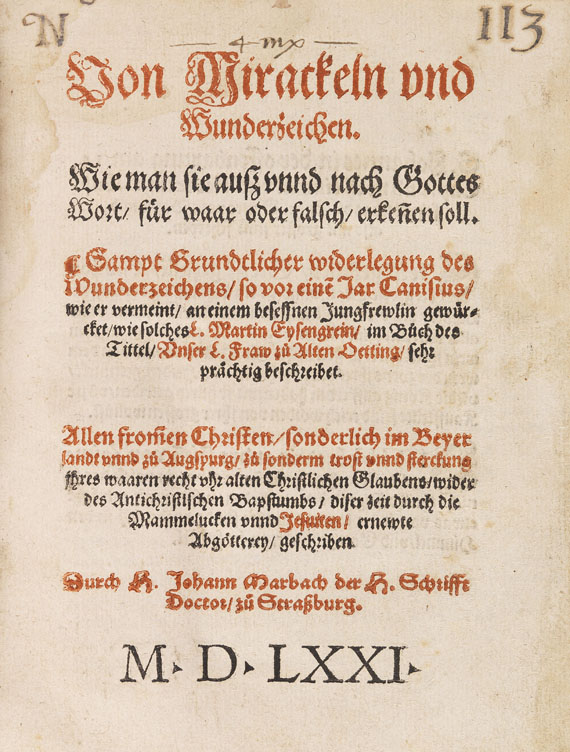 N
113
4 mx
Von Mirackeln vnd
Wunderzeichen.
Wie man sie auß vnnd nach Gottes
Wort/ für waar oder falsch/ erkeñen soll.
¶ Sampt Grundtlicher widerlegung des
Wunderzeichens/ so vor einẽ Jar Canisius/
wie er vermeint/ an einem besessnen Jungfrewlin gewür-
cket/ wie solches L. Martin Eysengrein/ im Bůch des
Tittel/ Vnser L. Fraw zů Alten Oetting/ sehr
prächtig beschreibet.
Allen from̃en Christen/ sonderlich im Beyer
landt vnnd zů Augspurg/ zů sonderm trost vnnd sterckung
jhres waaren recht vhr alten Christlichen Glaubens/ wider
des Antichristischen Bapstumbs/ diser zeit durch die
Mammelucken vnnd Jesuiten/ ernewte
Abgötterey/ geschriben
Durch H. Johann Marbach der H. Schrifft
Doctor/ zů Straßburg.
M. D. LXXI.